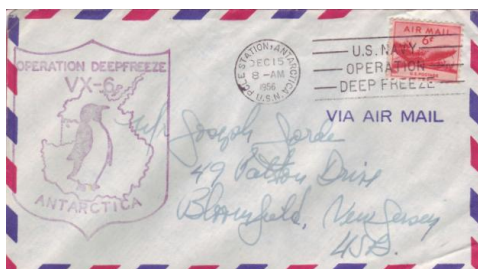 OPERATION DEEPFREEZE
VX-6
ANTARCTICA
POLE STATION • ANTARCTICA
DEC 15
8 - AM
1956
U.S.N.
U.S. NAVY
OPERATION
DEEP FREEZE
AIR MAIL
6¢
VIA AIR MAIL
Joseph
49 Patton Drive
Bloomfield, New Jersey
USA.